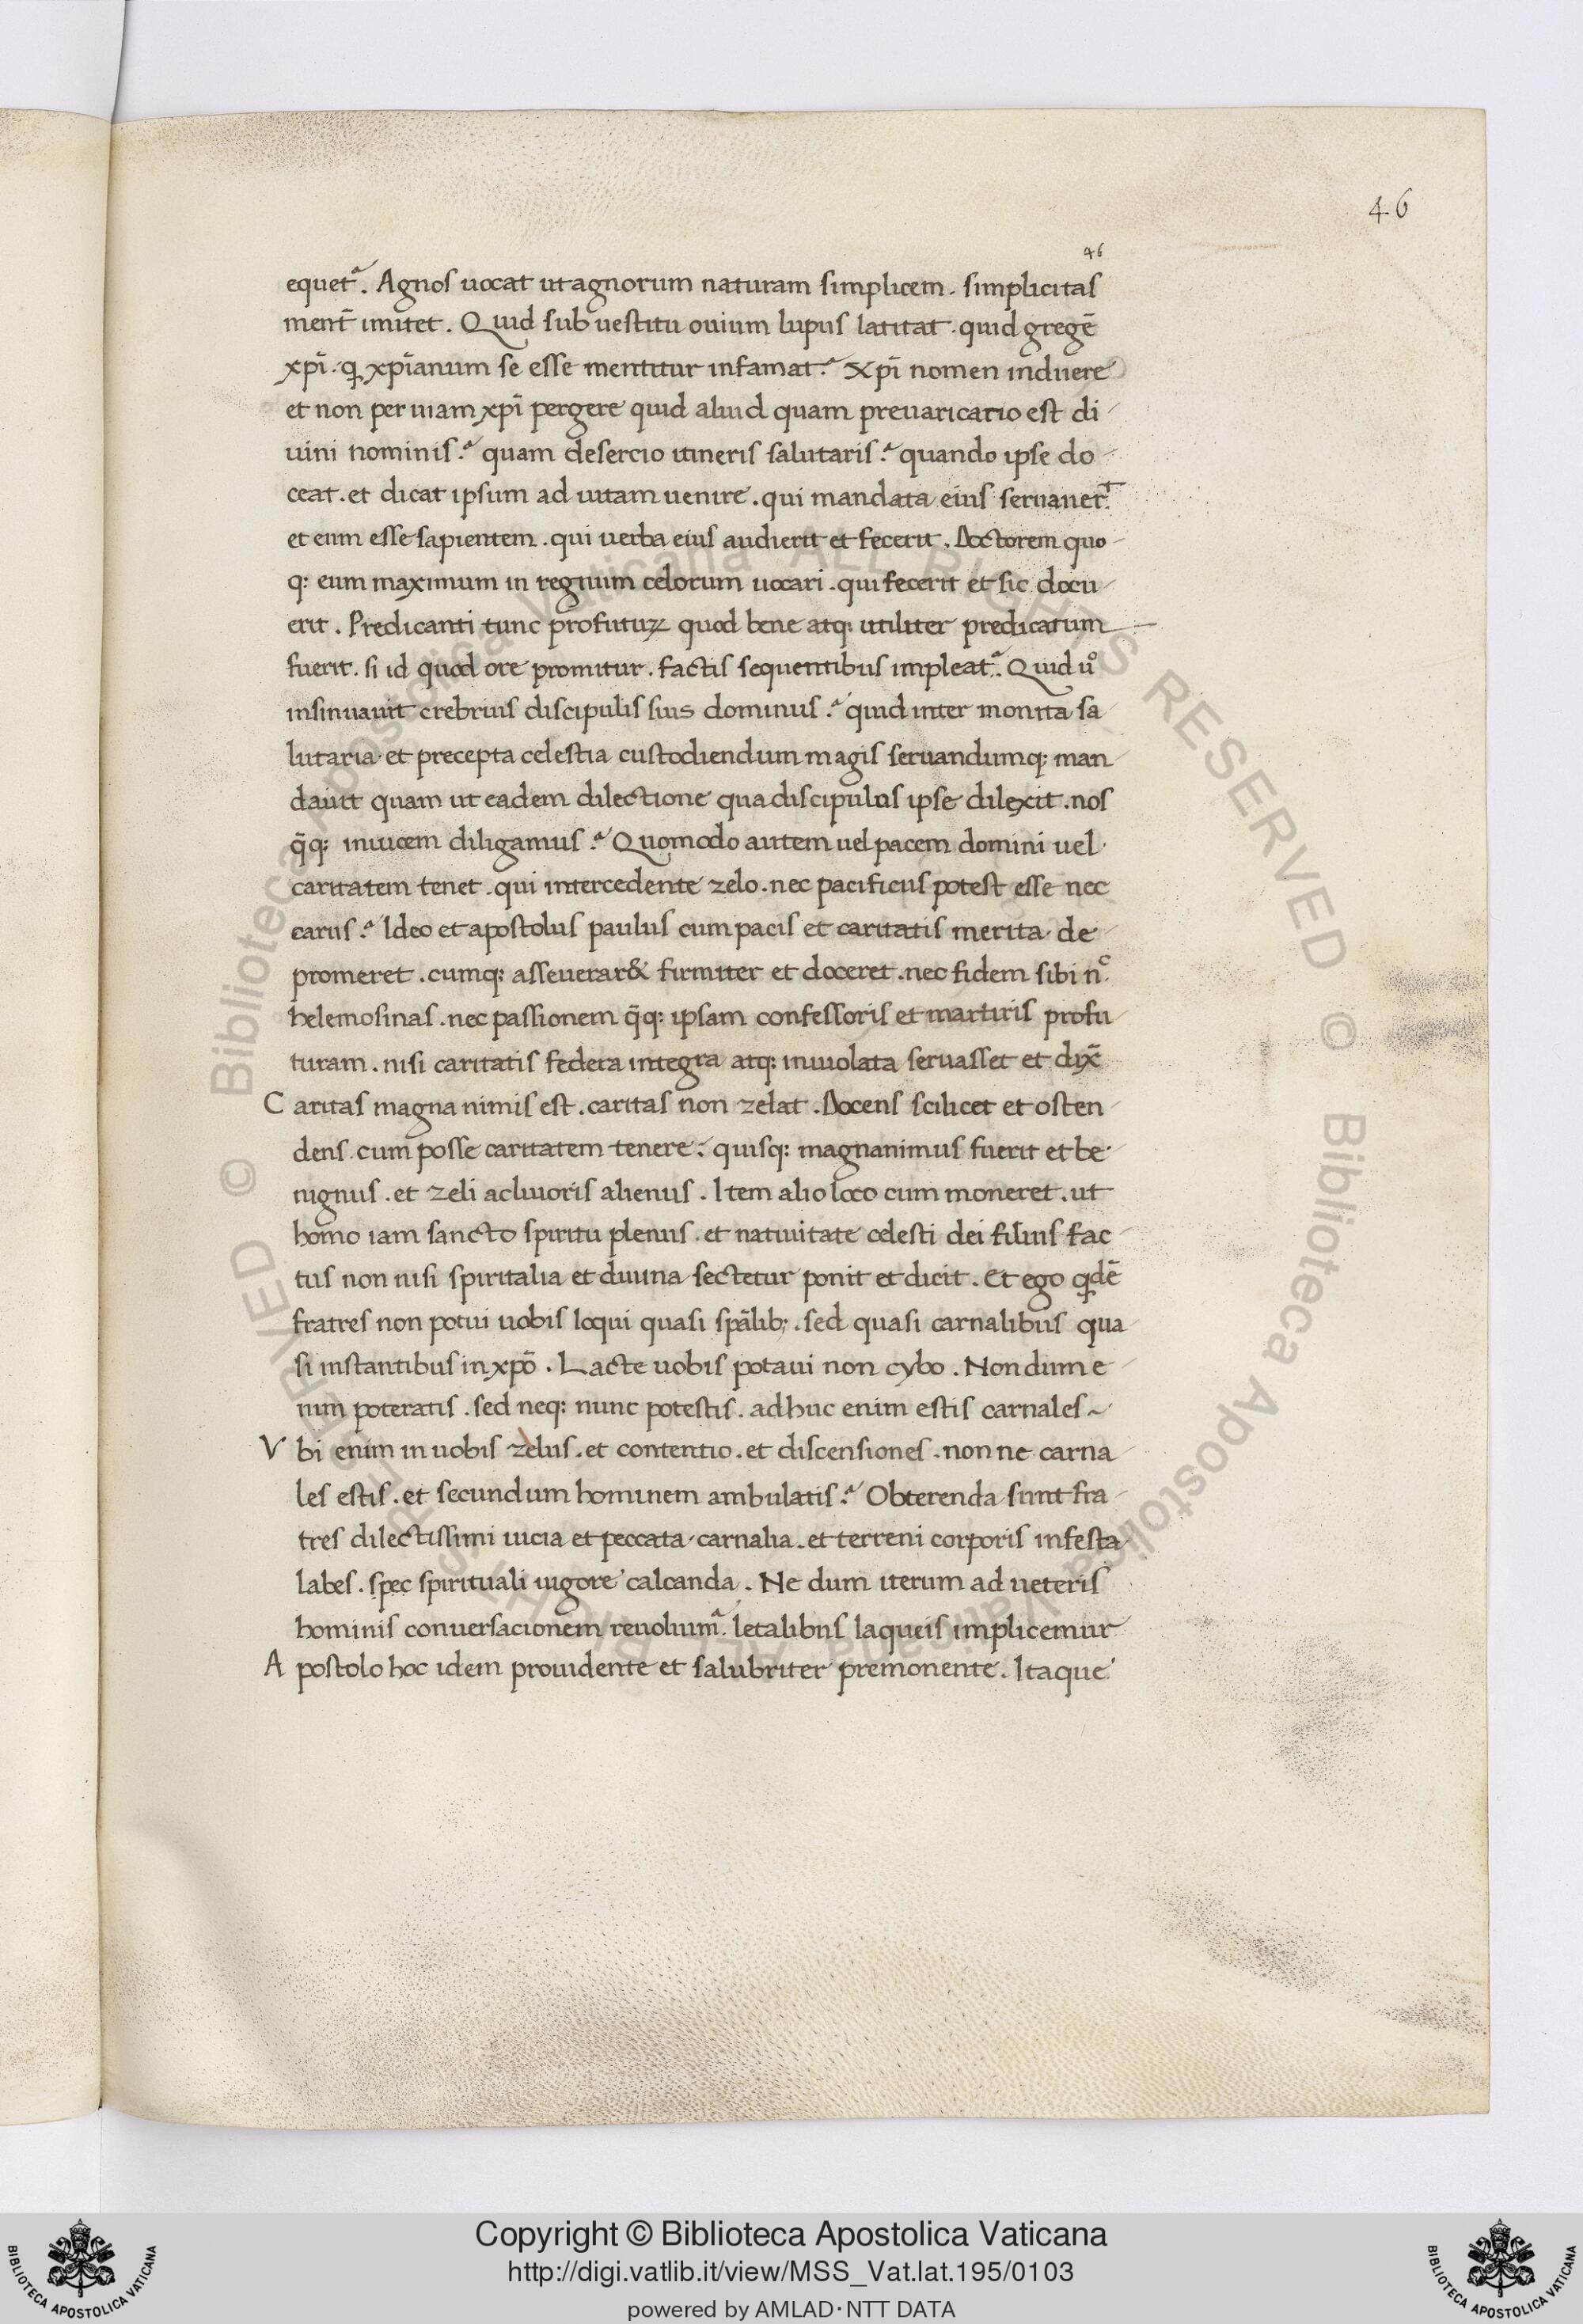 46
46
equet᷑. Agnos uocat ut agnorum naturam simplicem. simplicitas
ment̄ imitet. Quid sub uestitu ouium lupus latitat. quid gregē
xp̄i. q xp̄ianum se esse mentitur infamat? Xp̄i nomen induere
et non per uiam xp̄i pergere quid aliud quam preuaricatio est di-
uini nominis? quam desercio itineris salutaris? quando ipse do-
ceat. et dicat ipsum ad uitam uenire. qui mandata eius seruauerᵗ.
et eum esse sapientem. qui uerba eius audierit et fecerit. Doctorem quo-
q: eum maximum in regnum celorum uocari. qui fecerit et sic docu-
erit. Predicanti tunc profutuꝝ quod bene atq: utiliter predicatum
fuerit. si id quod ore promitur. factis sequentibus impleat᷑. Quid uͦ
insinuauit crebrius discipulis suis dominus? quid inter monita sa-
lutaria et precepta celestia custodiendum magis seruandumq: man-
dauit quam ut eadem dilectione qua discipulos ipse dilexit. nos
q̄q: inuicem diligamus? Quomodo autem uel pacem domini uel
caritatem tenet. qui intercedente zelo. nec pacificus potest esse nec
carus? Ideo et apostolus paulus cum pacis et caritatis merita de-
promeret. cumq: asseuerar& firmiter et doceret. nec fidem sibi nᶜ.
helemosinas. nec passionem q̄q: ipsam confessoris et martiris profu-
turam. nisi caritatis federa integra atq: inuiolata seruasset et dix̄
Caritas magnanimis est. caritas non zelat. Docens scilicet et osten-
dens. cum posse caritatem tenere. quisq: magnanimus fuerit et be-
nignus. et zeli ac liuoris alienus. Item alio loco cum moneret. ut
homo iam sancto spiritu plenus. et natiuitate celesti dei filius fac-
tus non nisi spiritalia et diuina sectetur ponit et dicit. Et ego qdē
fratres non potui uobis loqui quasi sp̄alib;. sed quasi carnalibus qua-
si instantibus in xp̄o. Lacte uobis potaui non cybo. Nondum e-
nim poteratis. sed neq: nunc potestis. adhuc enim estis carnales~
Vbi enim in uobis zelus. et contentio. et discensiones. non ne carna-
les estis. et secundum hominem ambulatis? Obterenda sunt fra-
tres dilectissimi uicia et peccata carnalia. et terreni corporis infesta
labes. spec spirituali uigore calcanda. Ne dum iterum ad ueteris
hominis conuersacionem reuoluim᷑. letalibus laqueis implicemur
Apostolo hoc idem prouidente et salubriter premonente. Itaque
© Biblioteca Apostolica Vaticana ALL RIGHTS RESERVED
© Biblioteca Apostolica Vaticana ALL RIGHTS RESERVED
BIBLIOTECA APOSTOLICA VATICANA
Copyright © Biblioteca Apostolica Vaticana
http://digi.vatlib.it/view/MSS_Vat.lat.195/0103
powered by AMLAD·NTT DATA
BIBLIOTECA APOSTOLICA VATICANA